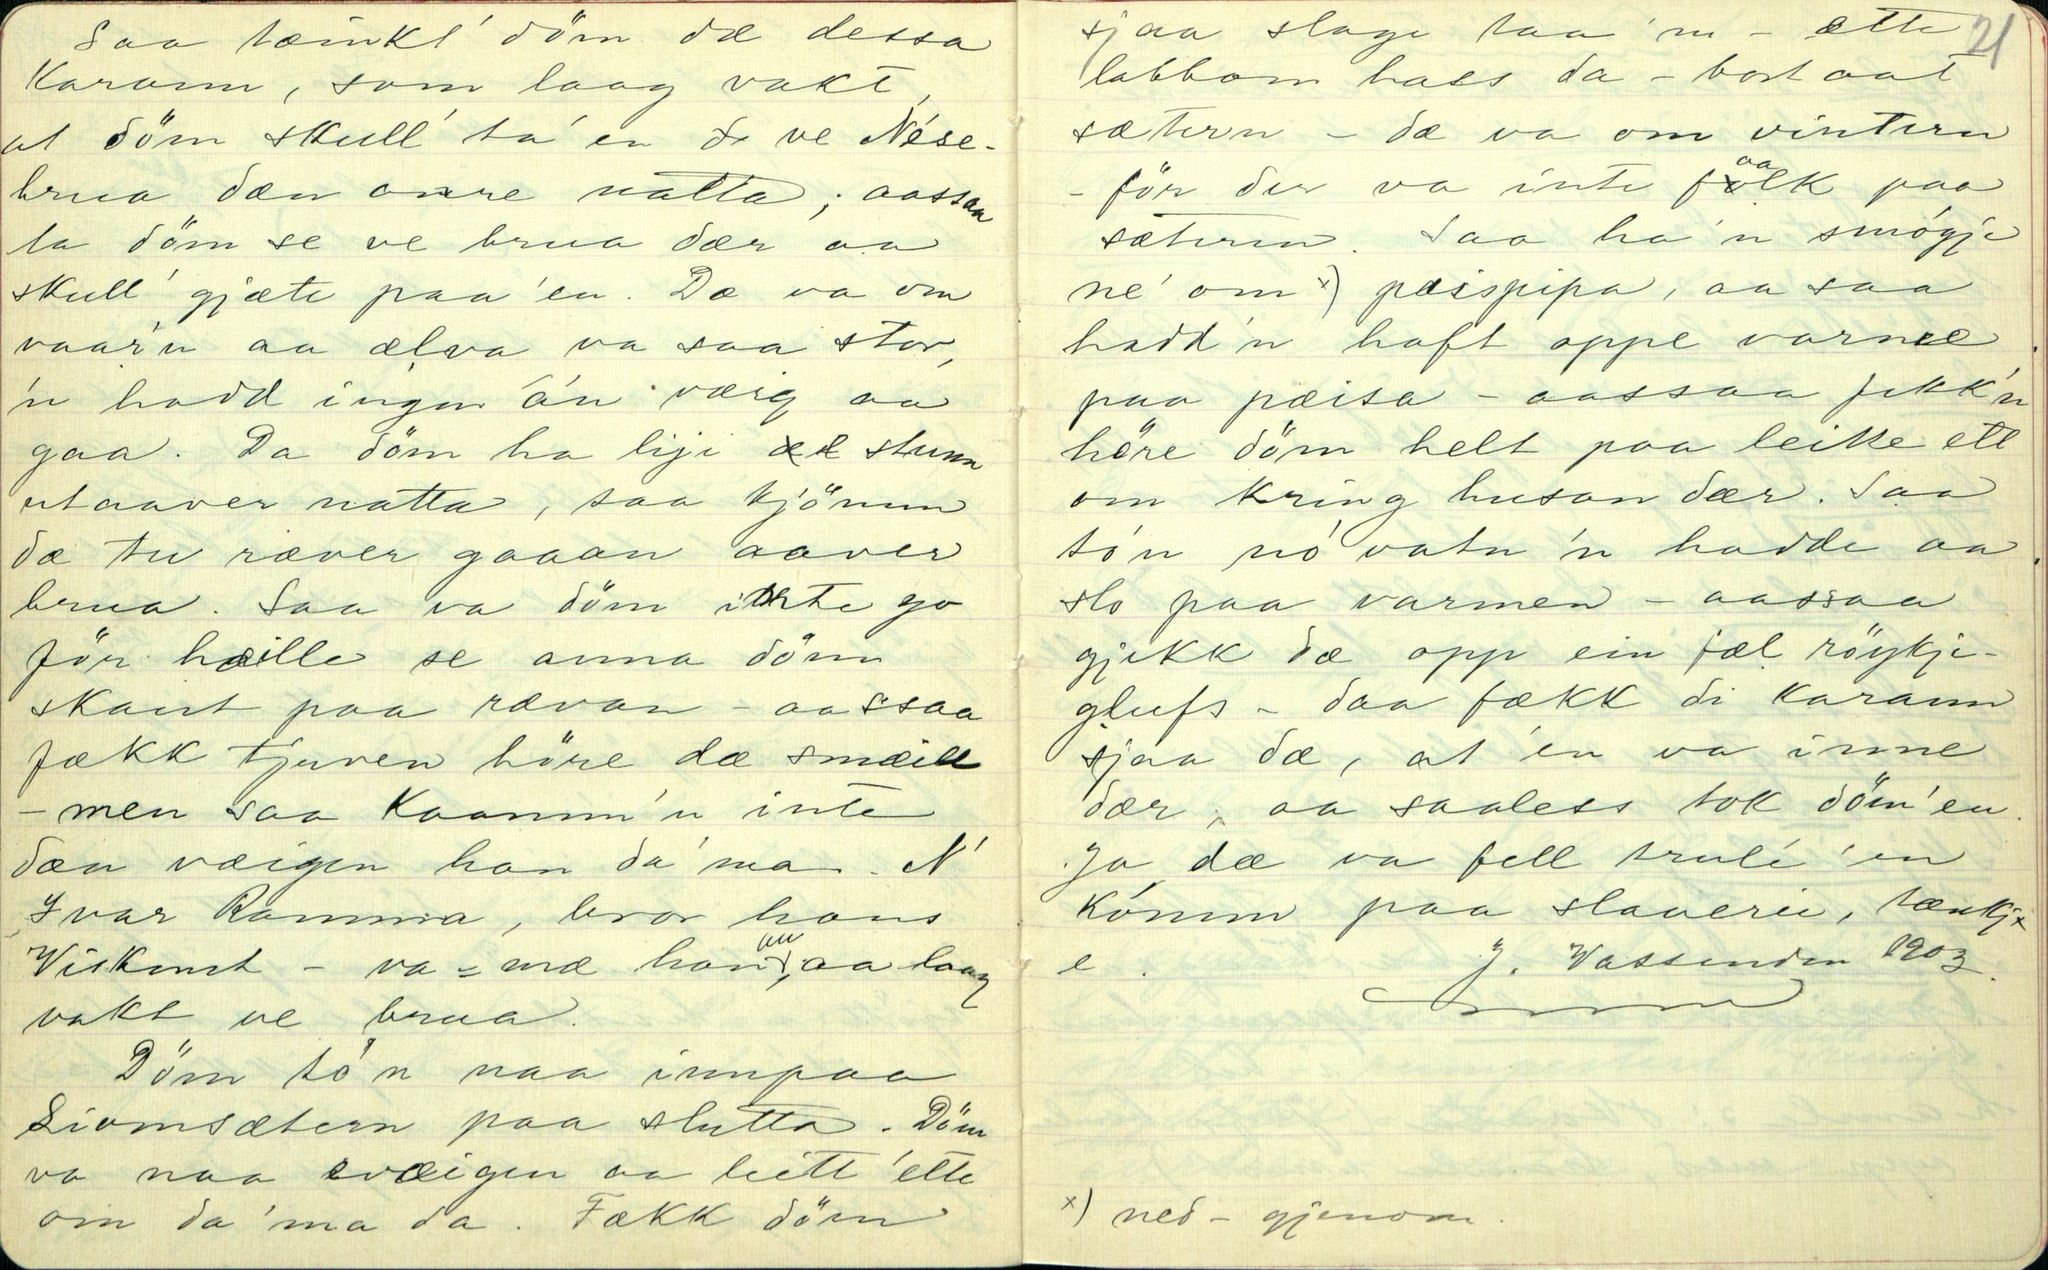 Saa tæinkt' döm dæ dessa
Karann, som laag vakt,
at döm skull' ta' en dr ve Nése-
brua dæn anre natta; aassaa
la döm se ve brua dær aa
skull' gjæte paa 'en. Dæ va om
vaar'n aa ælva va saa stor,
'n hadd ingen án væig aa
gaa. Da döm ha liji ei stunn
utaaver natta, saa kjömm
dæ tu ræver gaaan aaver
brua. Saa va döm inte go
för hæille se anna döm
skaut paa rævan - aassaa
fækk tjuven höre dæ smæill
- men saa kaamm'n inte
dæn væigen han da'ma. N'
Ivar Ramma, bror hans
Viskmut - va = mæ han, aa laag
vakt ve brua.
Döm tó'n naa innpaa
Liomsætern paa slutta. Döm
va naa i væigen aa leitt' ette
om da'ma da. Fækk döm
21
sjaa slage taa 'm - ætte
labbom hass da - bort aat
sætern - dæ va om vintern
- för der va inte faalk paa
sætern. Saa ha'n smógje
né' om x) pæispipa, aa saa
hadd'n haft oppe varme
paa pæisa - aassaa fekk'n
höre döm helt paa leitte ett
om kring husan dær. Saa
tó'n nó vatn 'n hadde aa
slo paa varmen - aassaa
gjekk dæ opp ein fæl röykje-
glufs - daa fækk di karann
sjaa dæ, at 'en va inne
dær, aa saaless tok döm 'en.
Ja dæ va fell trulé 'en
kómm paa slaverié, tænkj
e. J. Vassenden 1903.
x) ned - gjenom.